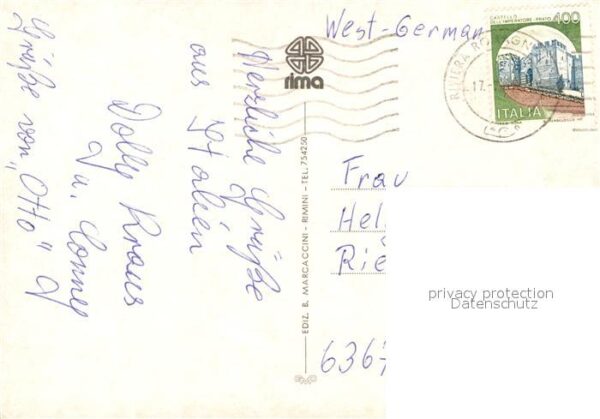 Herzliche Grüße
aus Italien
Dolly Kraus
u. Conny
Grüße von „Otto"
rima
EDIZ. B. MARCACCINI - RIMINI - TEL. 754250
West-German
CASTELLO
DELL'IMPERATORE - PRATO
400
ITALIA
RIVIERA
17.
Frau
Hel
Rie
636
privacy protection
Datenschutz